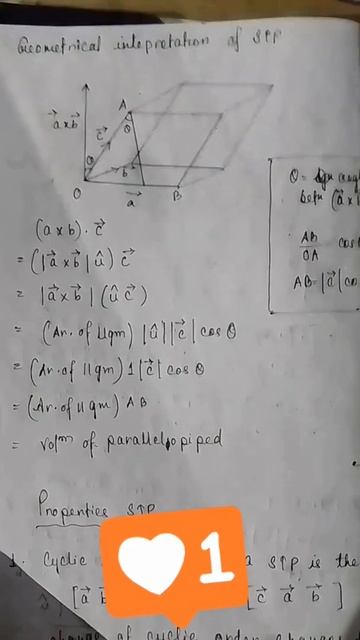 Geometrical intepretation of STP
A
a⃗xb⃗
c⃗
θ
θ
b⃗
O
a⃗
B
θ =
betn (a⃗x
AB
OA
cos
AB=|a⃗|co
(axb).c⃗
= (|a⃗xb⃗|û)c⃗
= |a⃗xb⃗|(ûc⃗)
= (Ar. of llgm)|û||c⃗|cosθ
= (Ar. of llgm)1|c⃗|cosθ
= (Ar. of llgm) AB
= volm of parallelopiped
Properties STP
1. Cyclic
a STP is the
[a⃗ b
[c⃗ a⃗ b⃗]
1
change of cyclic order changes